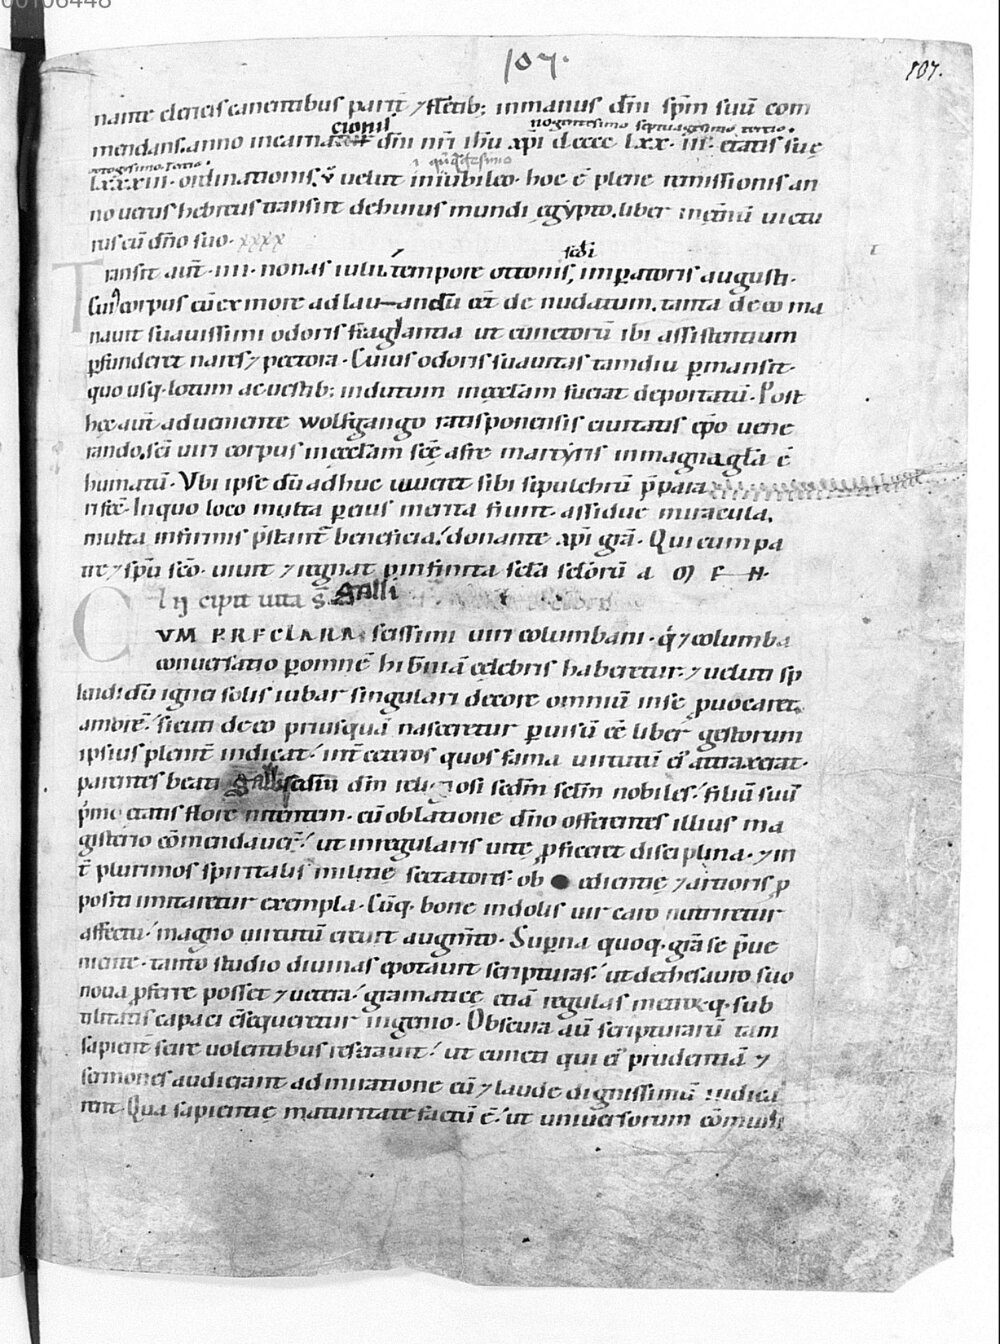 00106448
107.
107.
nante clericis canentibus parit̄ ⁊ flētib; inmanus dn̄i spm̄ suū com
cionis nogentesimo septuagesimo tertio.
mendans. anno incarna dn̄i nr̄i ih̄u xp̄i dcccc lxx. iii. etatis suę
octogesimo tertio.
lxxxiii. ordinationis. v̄ velut iniubileo. hoc ē plene remissionis an
no verus hebreus transiit dehuius mundi ęgypto. liber incęlū victu
rus cū dn̄o suo. xxxx
scd̄i
Transiit aut̄. iiii. nonas iulii. tempore ottonis, imꝑatoris augusti.
Cui corpus cū ex more ad lauandū eēt denudatum. tanta de eo ma
nauit suauissimi odoris fraglantia ut cunctorū ibi assistentium
ꝑfunderet nares ⁊ pectora. Cuius odoris suauitas tamdiu ꝑmansit.
quo usq. lotum ac uestib; indutum inęcclam fuerat deportatū. Post
hęc aut̄ adueniente wolfgango ratisponensis ciuitatis ep̄o uene
rando. sc̄i uiri corpus inęcclam sc̄ę afre martyris inmagna gl̄a ē
humatū. Vbi ipse dū adhuc uiueret sibi sepulchrū p̄para
risset. Inquo loco multa ꝑ eius merita fiunt. assidue miracula.
multa infirmis p̄stant̄ beneficia. donante xp̄i grā. Qui cum pa
tre ⁊ sp̄u sc̄o. uiuit ⁊ regnat ꝑ infinita scl̄a scl̄orū a M E N.
Incipit uita s̄. Galli
CVM PRECLARA scissimi uiri columbani. q̄ ⁊ columba
conuersatio ꝑ omnē hiberniā celebris haberetur. ⁊ ueluti sp
lendidū ignei solis iubar singulari decore omniū inse ꝓuocaret
amorē. sicuti de eo priusquā nasceretur ꝑ uisū eē liber gestorum
ipsius plenit̄ indicat. int̄ ceteros quos fama uirtutū ei' attraxerat.
parentes beati Galli scdm̄ dm̄ religiosi scdm̄ sclm̄ nobiles. filiū suū
primo etatis flore nitentem. cū oblatione dn̄o offerentes illius ma
gisterio cōmendauer̄. ut inregularis uitę ꝓficeret disciplina. ⁊ in
t̄ plurimos spiritalis militię sectatores. ob edientię ⁊ artioris ꝓ
positi imitaretur exempla. Cūq. bone indolis uir caro nutriretur
affectu. magno uirtutū creuit augm̄to. Superna quoq. grā se p̄ue
niente. tanto studio diuinas epotauit scripturas. ut dethesauro suo
noua ꝓferre posset ⁊ uetera. gramaticę etiā regulas metrięq. sub
tilitates capaci cōsequeretur ingenio. Obscura aū scripturarū tam
sapient̄ scire uolentibus reserauit. ut cuncti qui ei' prudentiā ⁊
sermones audierant admiratione eū ⁊ laude dignissimū iudica
rent. Qua sapientię maturitate factū ē. ut uniuersorum cōmuni